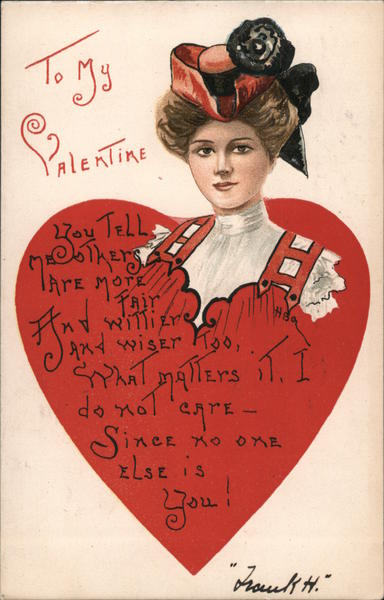 To My
Valentine
You Tell
me others
are more
fair
And wittier
and wiser too,
What matters it, I
do not care—
Since no one
else is
You!
HBG
"Frank H."